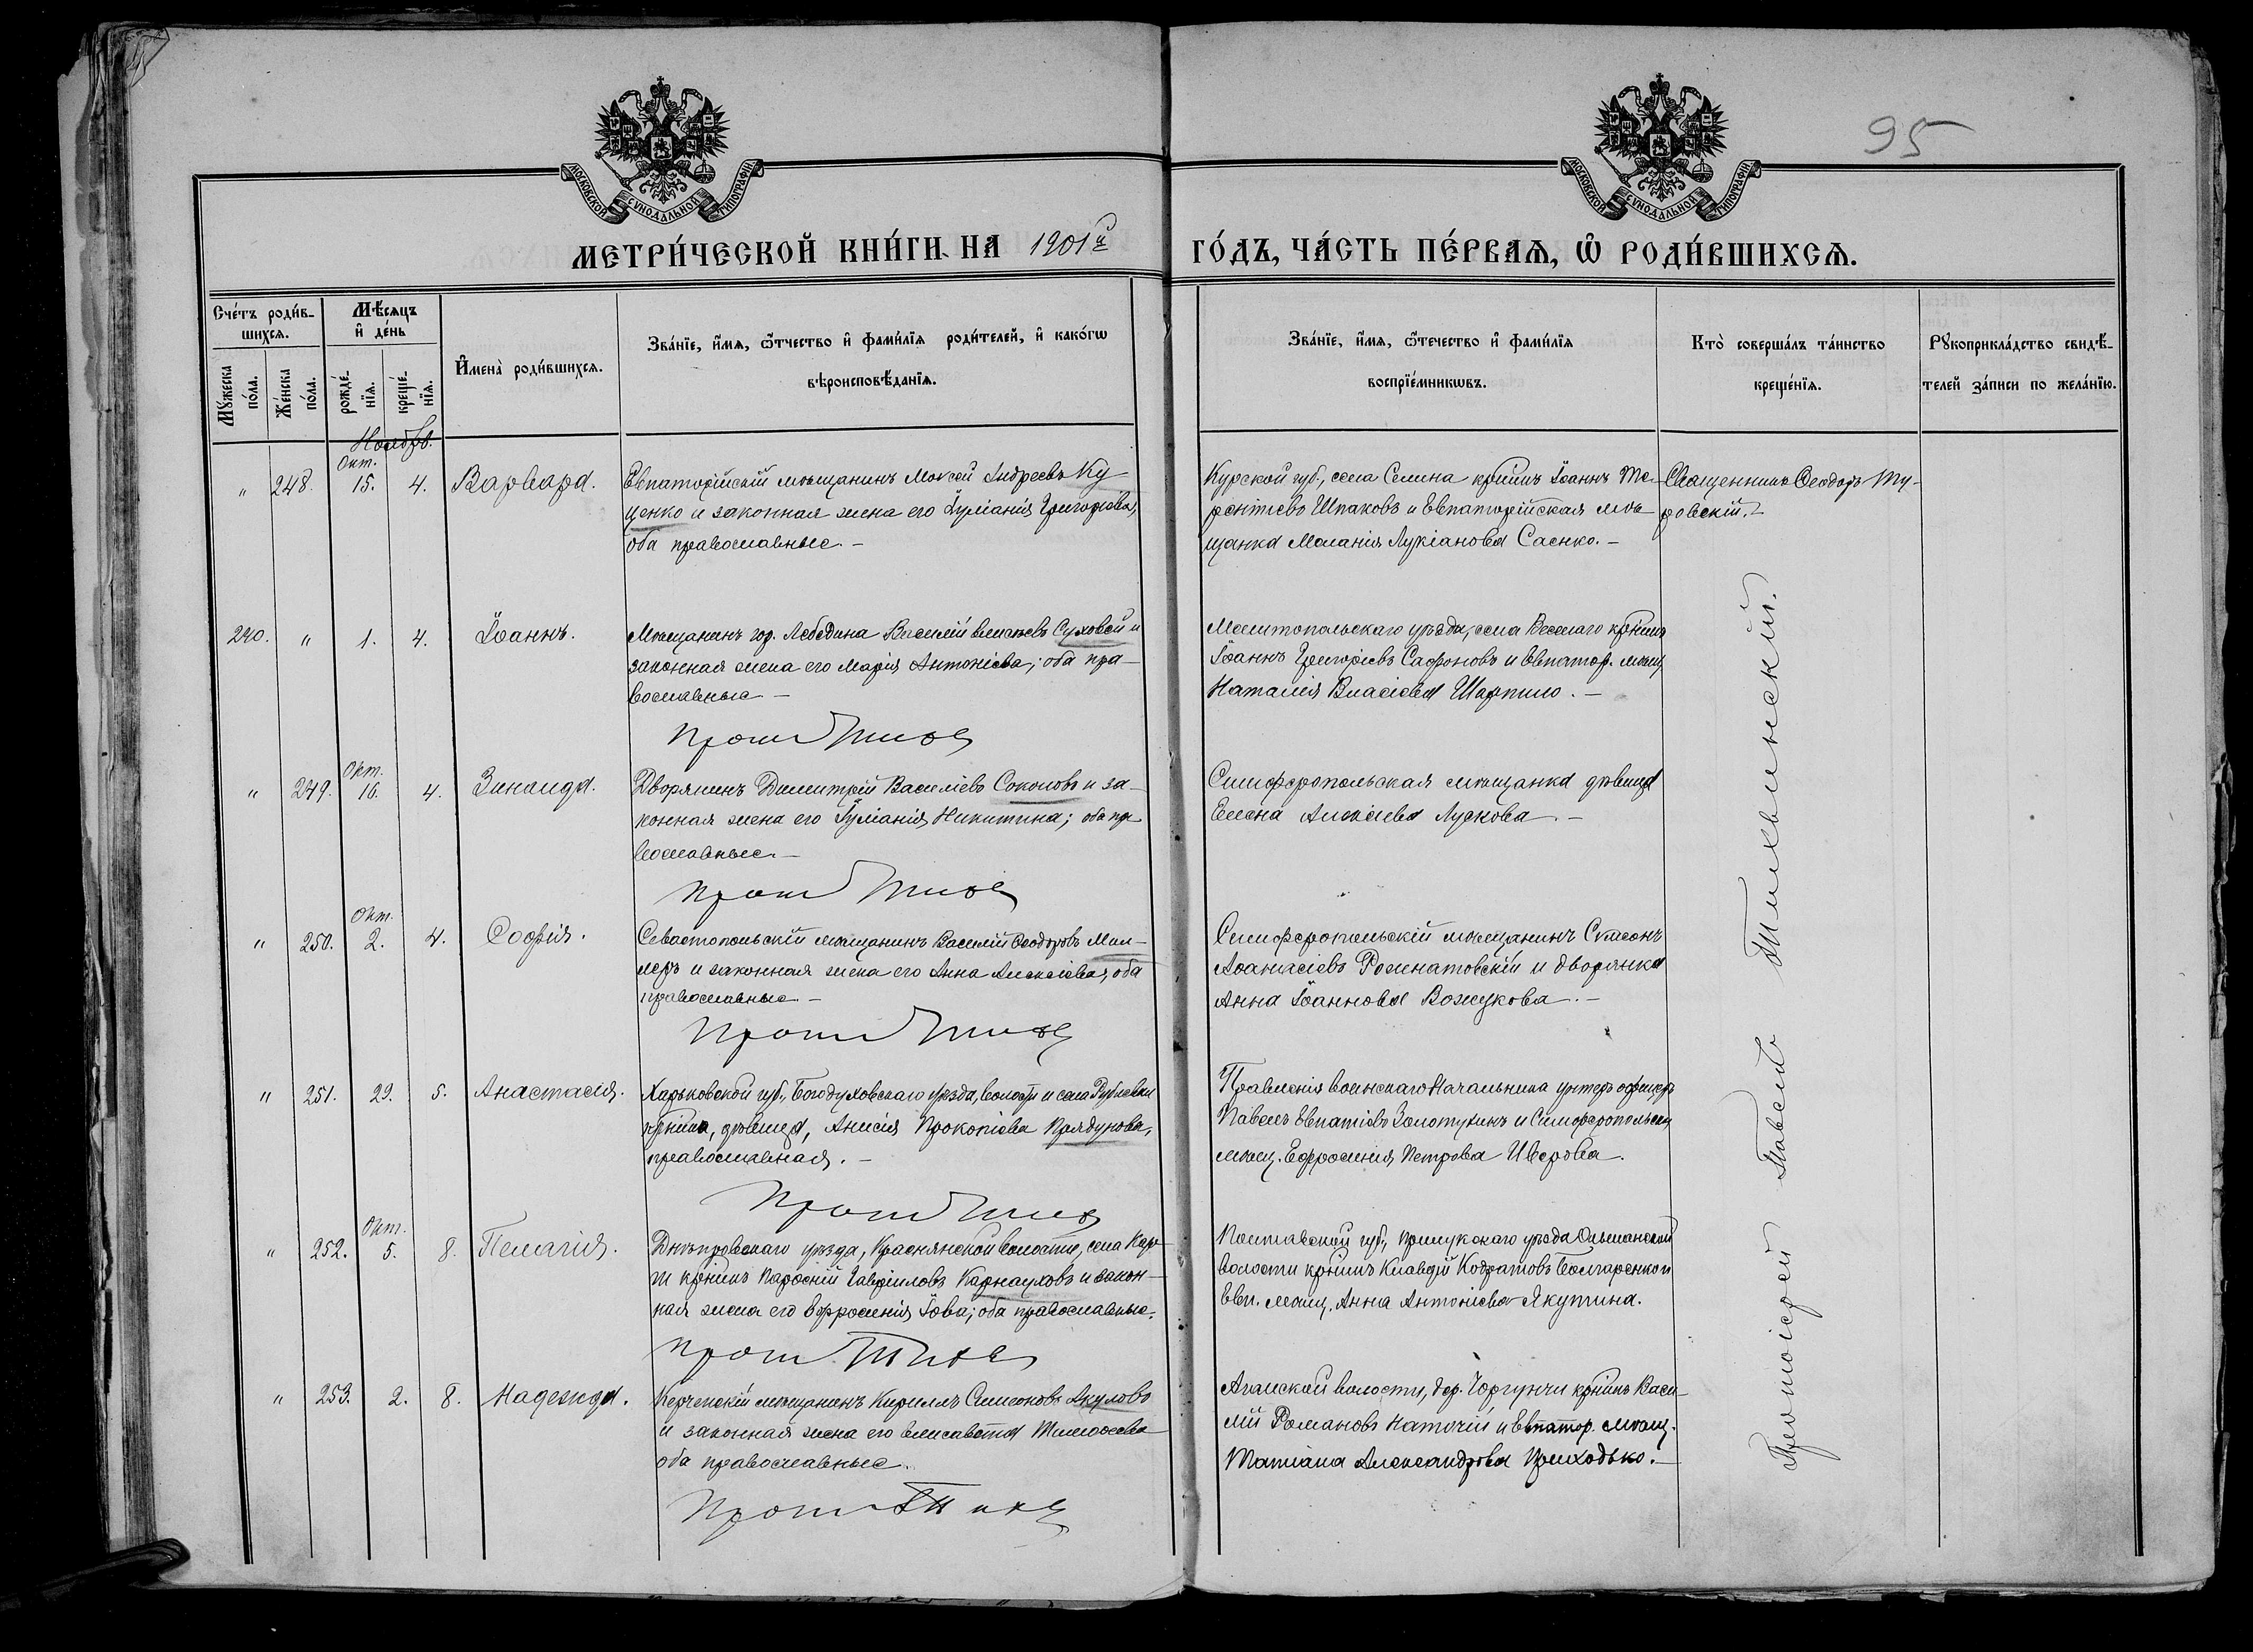 95
МОСКОВСКОЙ СУНОДАЛЬНОЙ ТИПОГРАФІИ.
МОСКОВСКОЙ СУНОДАЛЬНОЙ ТИПОГРАФІИ.
МЕТРИ́ЧЕСКОЙ КНИ́ГИ НА 1901й ГО́ДЪ, ЧА́СТЬ ПЕ́РВАЯ, Ѽ РОДИ́ВШИХСЯ.
Сче́тъ роди́в-
шихся.
Мѣ́сяцъ
и҆ де́нь
Мꙋ́жеска
по́ла.
Же́нска
по́ла.
рожде́-
нїя.
креще́-
нїя.
И҆мена̀ роди́вшихся.
Зва́нїе, и҆́мя, ѻ҆́тчество и҆ фами́лїя роди́телей, и҆ како́гѡ
вѣроисповѣ́данїя.
Зва́нїе, и҆́мя, ѻ҆́течество и҆ фами́лїя
воспрїе́мникѡвъ.
Кто̀ соверша́лъ та́инство
креще́нїя.
Рꙋкоприкла́дство свидѣ́-
телей за́писи по жела́нїю.
Ноябрь.
Окт.
" 248. 15. 4. Варвара.
Евпаторійскій мѣщанинъ Моѵсей Андреевъ Ку-
ценко и законная жена его Іуліанія Григоріева,
оба православные. -
Курской губ., села Селина кр-нинъ Іоаннъ Те-
рентіевъ Шпаковъ и Евпаторійская мѣ-
щанка Меланія Лукіанова Саенко. -
Священникъ Ѳеодоръ
240. " 1. 4. Іоаннъ.
Мѣщанинъ гор. Лебедина Василій Суховей и
законная жена его Марія Антоніева; оба пра-
вославные -
Мелитопольскаго уѣзда, села Веселаго кр-нинъ
Іоаннъ Григоріевъ Сафоновъ и Евпатор. мѣщ.
Наталія Власіева Шарпило. -
Прот. Тихв
Окт.
" 249. 16. 4. Зинаида.
Дворянинъ Димитрій Василіевъ Соколовъ и за-
конная жена его Іуліанія Никитина; оба пра
вославные. -
Симферопольская мѣщанка дѣвица
Елена Алексіева Лускова -
Прот. Тихв
Окт.
" 250. 2. 4. Софія.
Севастопольскій мѣщанинъ Василій Ѳеодоровъ Мил-
леръ и законная жена его Анна Алексіева, оба
православные -
Симферопольскій мѣщанинъ Симеонъ
Аѳанасіевъ Рожнатовскій и дворянка
Анна Іоаннова Вожукова. -
Прот. Тихв
" 251. 29. 5. Анастасія.
Харьковской губ., Богодуховскаго уѣзда, волости и села Рублевки
кр-нка, дѣвица, Анисія Прокопіева Прядунова,
православная. -
Правленія воинскаго Начальника унтеръ офицеръ
Павелъ Евпатіевъ Золотухинъ и Симферопольская
мѣщ. Евфросинія Петрова Иверова.
Прот. Тихв
Окт.
" 252. 5. 8. Пелагія.
Днѣпровскаго уѣзда, Краснянской волости, села Кар-
ги кр-нинъ Парѳеній Гавріиловъ Карнауховъ и закон-
ная жена его Евфросинія Іова; оба православные.
Полтавской губ., Прилукскаго уѣзда Ольшанской
волости кр-нинъ Клавдій Кодратовъ Болгаренко и
Евп. мѣщ. Анна Антоніева Якутина.
Прот. Тихв
" 253. 2. 8. Надежда.
Керченскій мѣщанинъ Кириллъ Симеоновъ Акуловъ
и законная жена его Елисавета Тимоѳеева
оба православные.
волости, дер. Чоргунчи кр-нинъ Васи-
лій Романовъ Наточій и Евпатор. мѣщ.
Татіана Александрова Приходько. -
Прот. Тихв
Протоіерей Павелъ Тихвинскій.